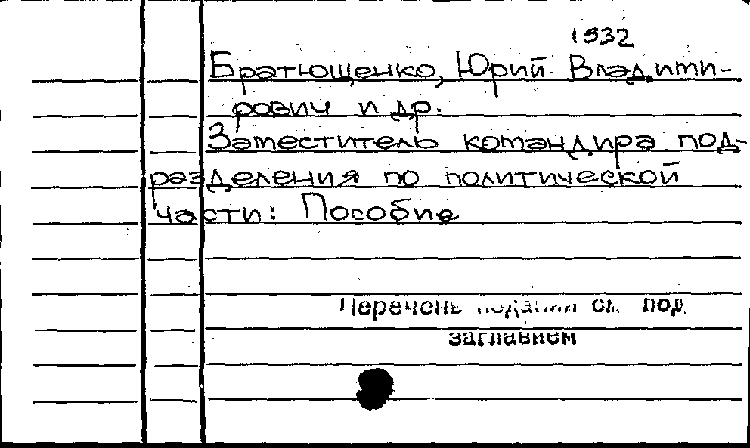 1932
Братющенко, Юрий Владими-
рович и др.
Заместитель командира под-
разделения по политической
части: Пособие
Перечень изданий см. под
заглавием